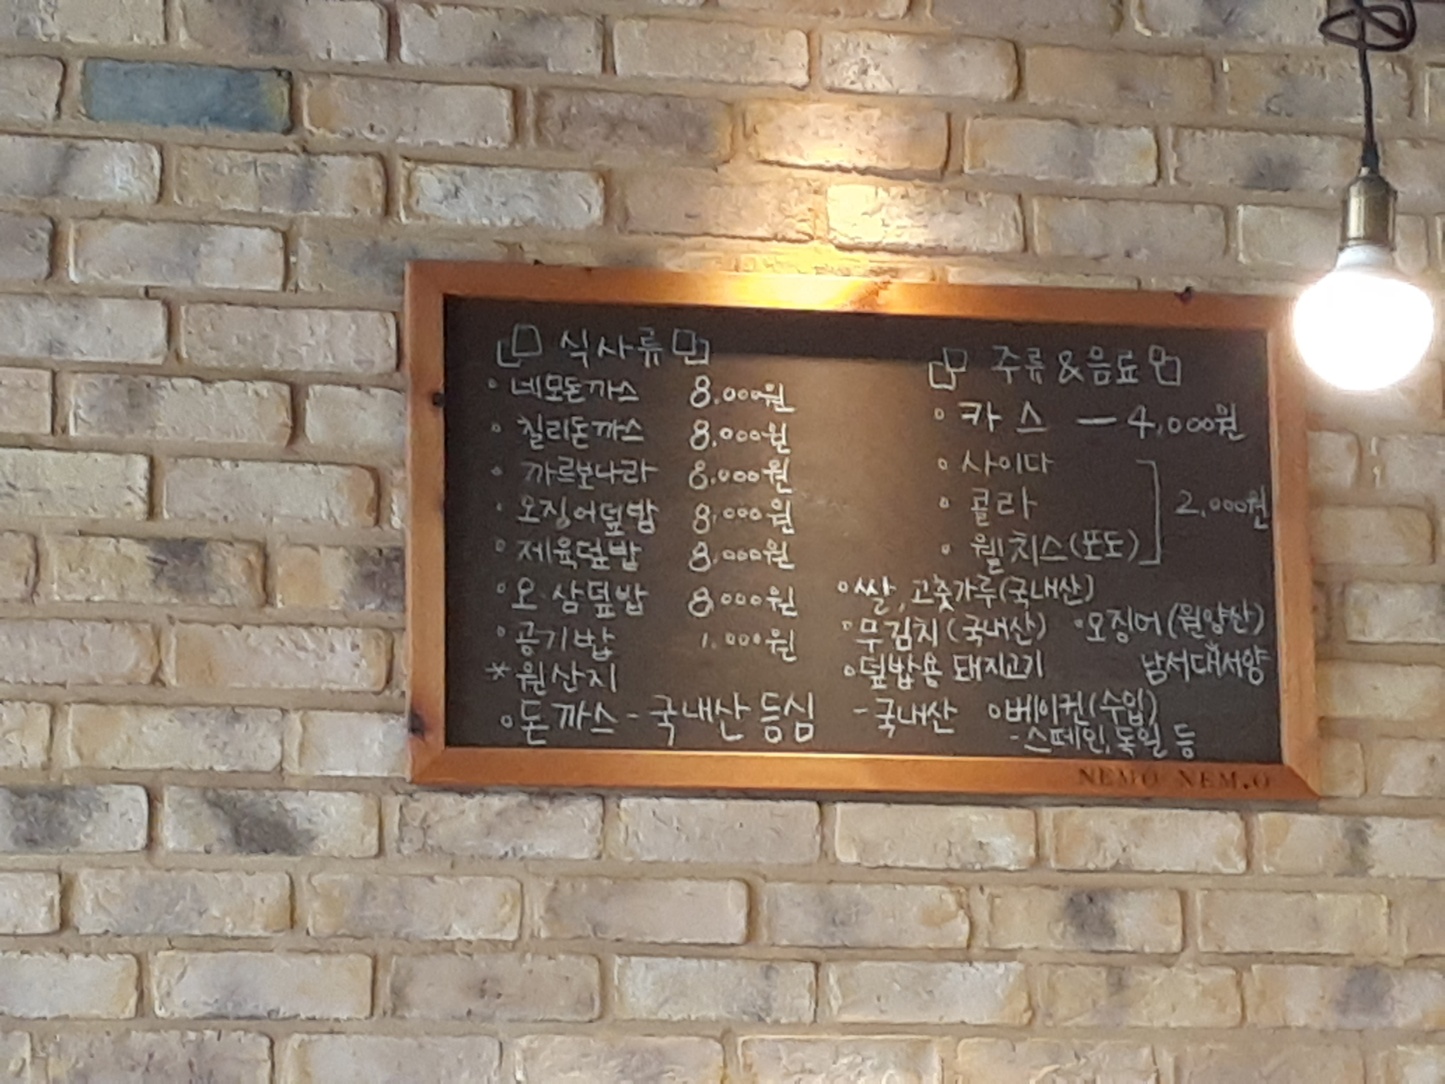 식사류
네모돈까스 8,000원
칠리돈까스 8,000원
까르보나라 8,000원
오징어덮밥 8,000원
제육덮밥 8,000원
오·삼덮밥 8,000원
공기밥 1,000원
*원산지
돈까스-국내산 등심
주류&음료
카스 - 4,000원
사이다
콜라
웰치스(포도)
2,000원
쌀, 고춧가루(국내산)
무김치(국내산)
오징어(원양산)
남서대서양
덮밥용 돼지고기
-국내산
베이컨(수입)
-스페인, 독일 등
NEMO NEM.O